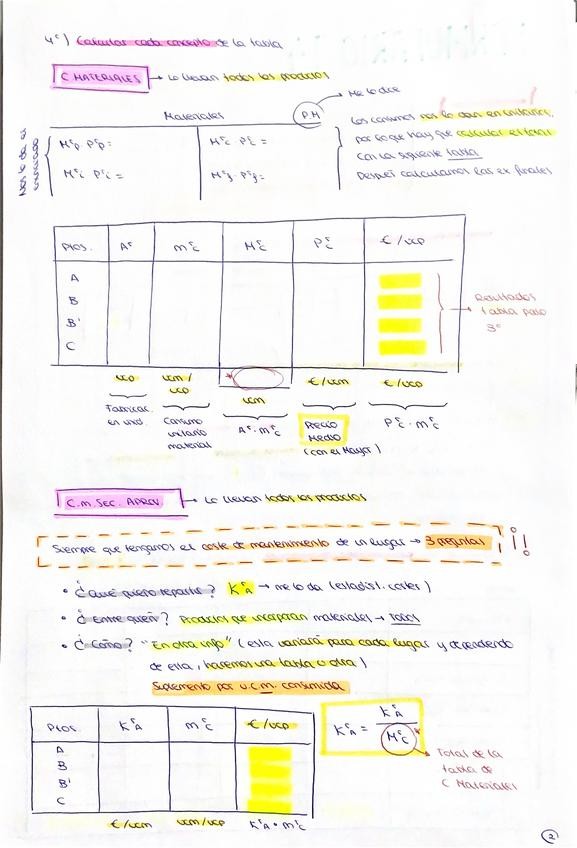 4º) Calcular cada concepto de la tabla
C MATERIALES → Lo llevan todos los productos
Me lo dice
Materiales P.M
Nos lo da el enunciado
Mᶜp Pᶜp =
Mᶜc Pᶜc =
Los consumos nos lo dan en unitarios,
por lo que hay que calcular el total
con la siguiente tabla
Después calculamos las ex finales
Ptos. Aᶜ mᶜc Mᶜc Pᶜc €/UCP
A
B
B'
C
Resultados
tabla paso
3º
UCP UCM/UCP * UCM €/UCM €/UCP
Fabricac.
en unid.
Consumo
unitario
material
Aᶜ · mᶜc
Precio
Medio
(con el Mayor)
Pᶜc · mᶜc
C.M. SEC. APROV → Lo llevan todos los productos
Siempre que tengamos el coste de mantenimiento de un lugar → 3 preguntas !!!
• ¿Qué quiero repartir? KᶜA → me lo da (estadíst. costes)
• ¿Entre quién? Productos que incorporan materiales → TODOS
• ¿Cómo? "En otra info" (esta variará para cada lugar y dependiendo
de ella, haremos una tabla u otra)
Suplemento por u.c.m. consumida
Ptos. KᶜA mᶜc €/UCP
A
B
B'
C
€/UCM UCM/UCP KᶜA · mᶜc
KᶜA = KᶜA / Mᶜc *
Total de la
tabla de
C Materiales
2